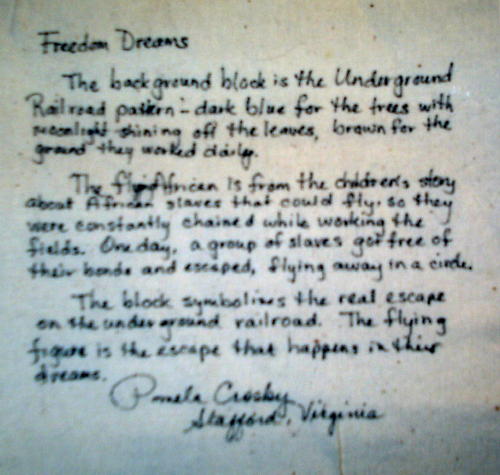 Freedom Dreams
The background block is the Underground
Railroad pattern - dark blue for the trees with
moonlight shining off the leaves, brown for the
ground they worked daily.
The flying African is from the children's story
about African slaves that could fly, so they
were constantly chained while working the
fields. One day, a group of slaves got free of
their bonds and escaped, flying away in a circle.
The block symbolizes the real escape
on the underground railroad. The flying
figure is the escape that happens in their
dreams.
Pamela Crosby
Stafford, Virginia